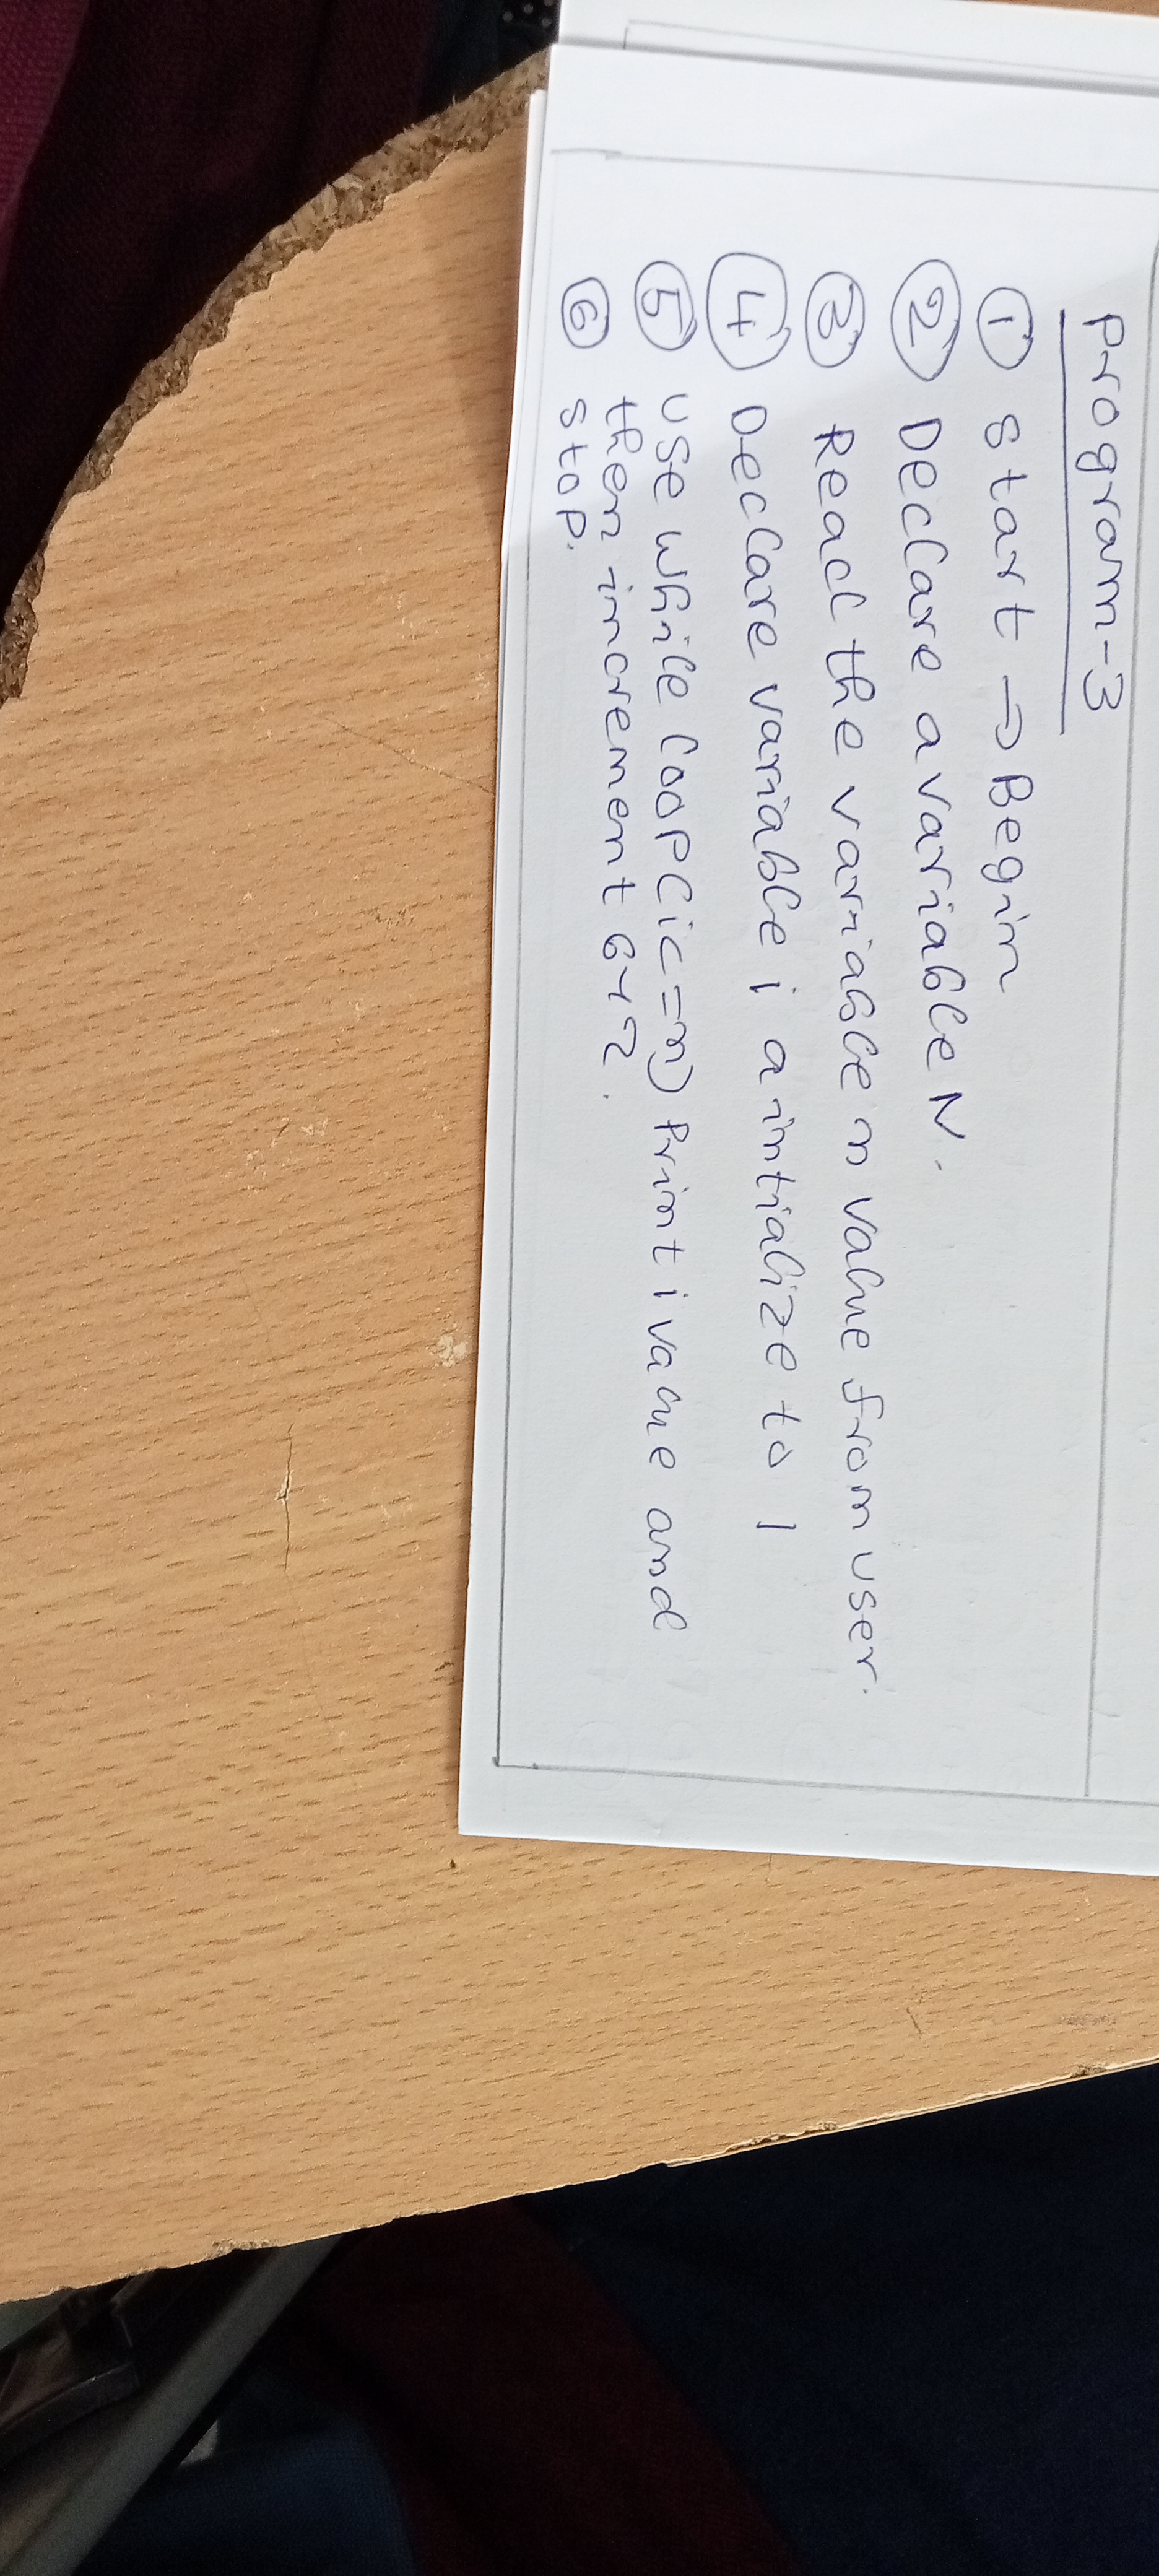 Program-3
① start → Begin
② Declare a variable N.
③ Read the variable n value from user.
④ Declare variable i a intialize to 1
⑤ use while loop(i<=n) Print i value and
then increment by 2.
⑥ stop.